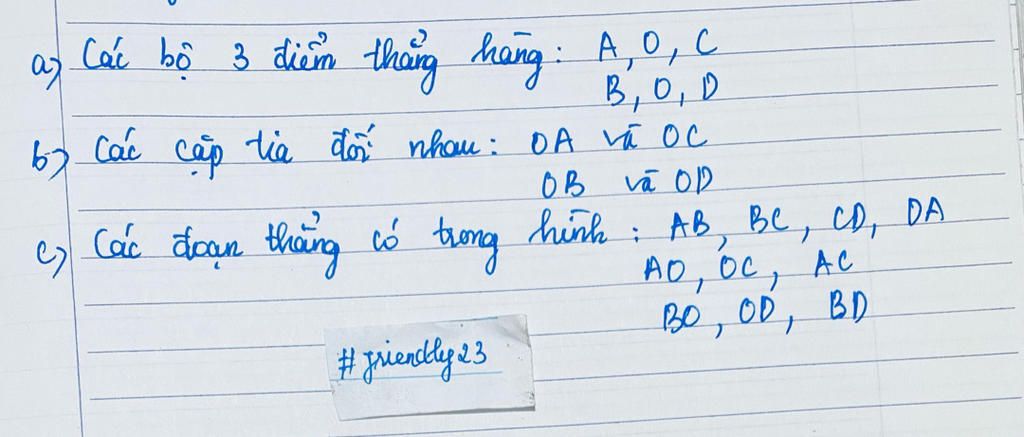 a) Các bộ 3 điểm thẳng hàng: A, O, C
B, O, D
b) Các cặp tia đối nhau: OA và OC
OB và OD
c) Các đoạn thẳng có trong hình: AB, BC, CD, DA
AO, OC, AC
BO, OD, BD
#friendly23